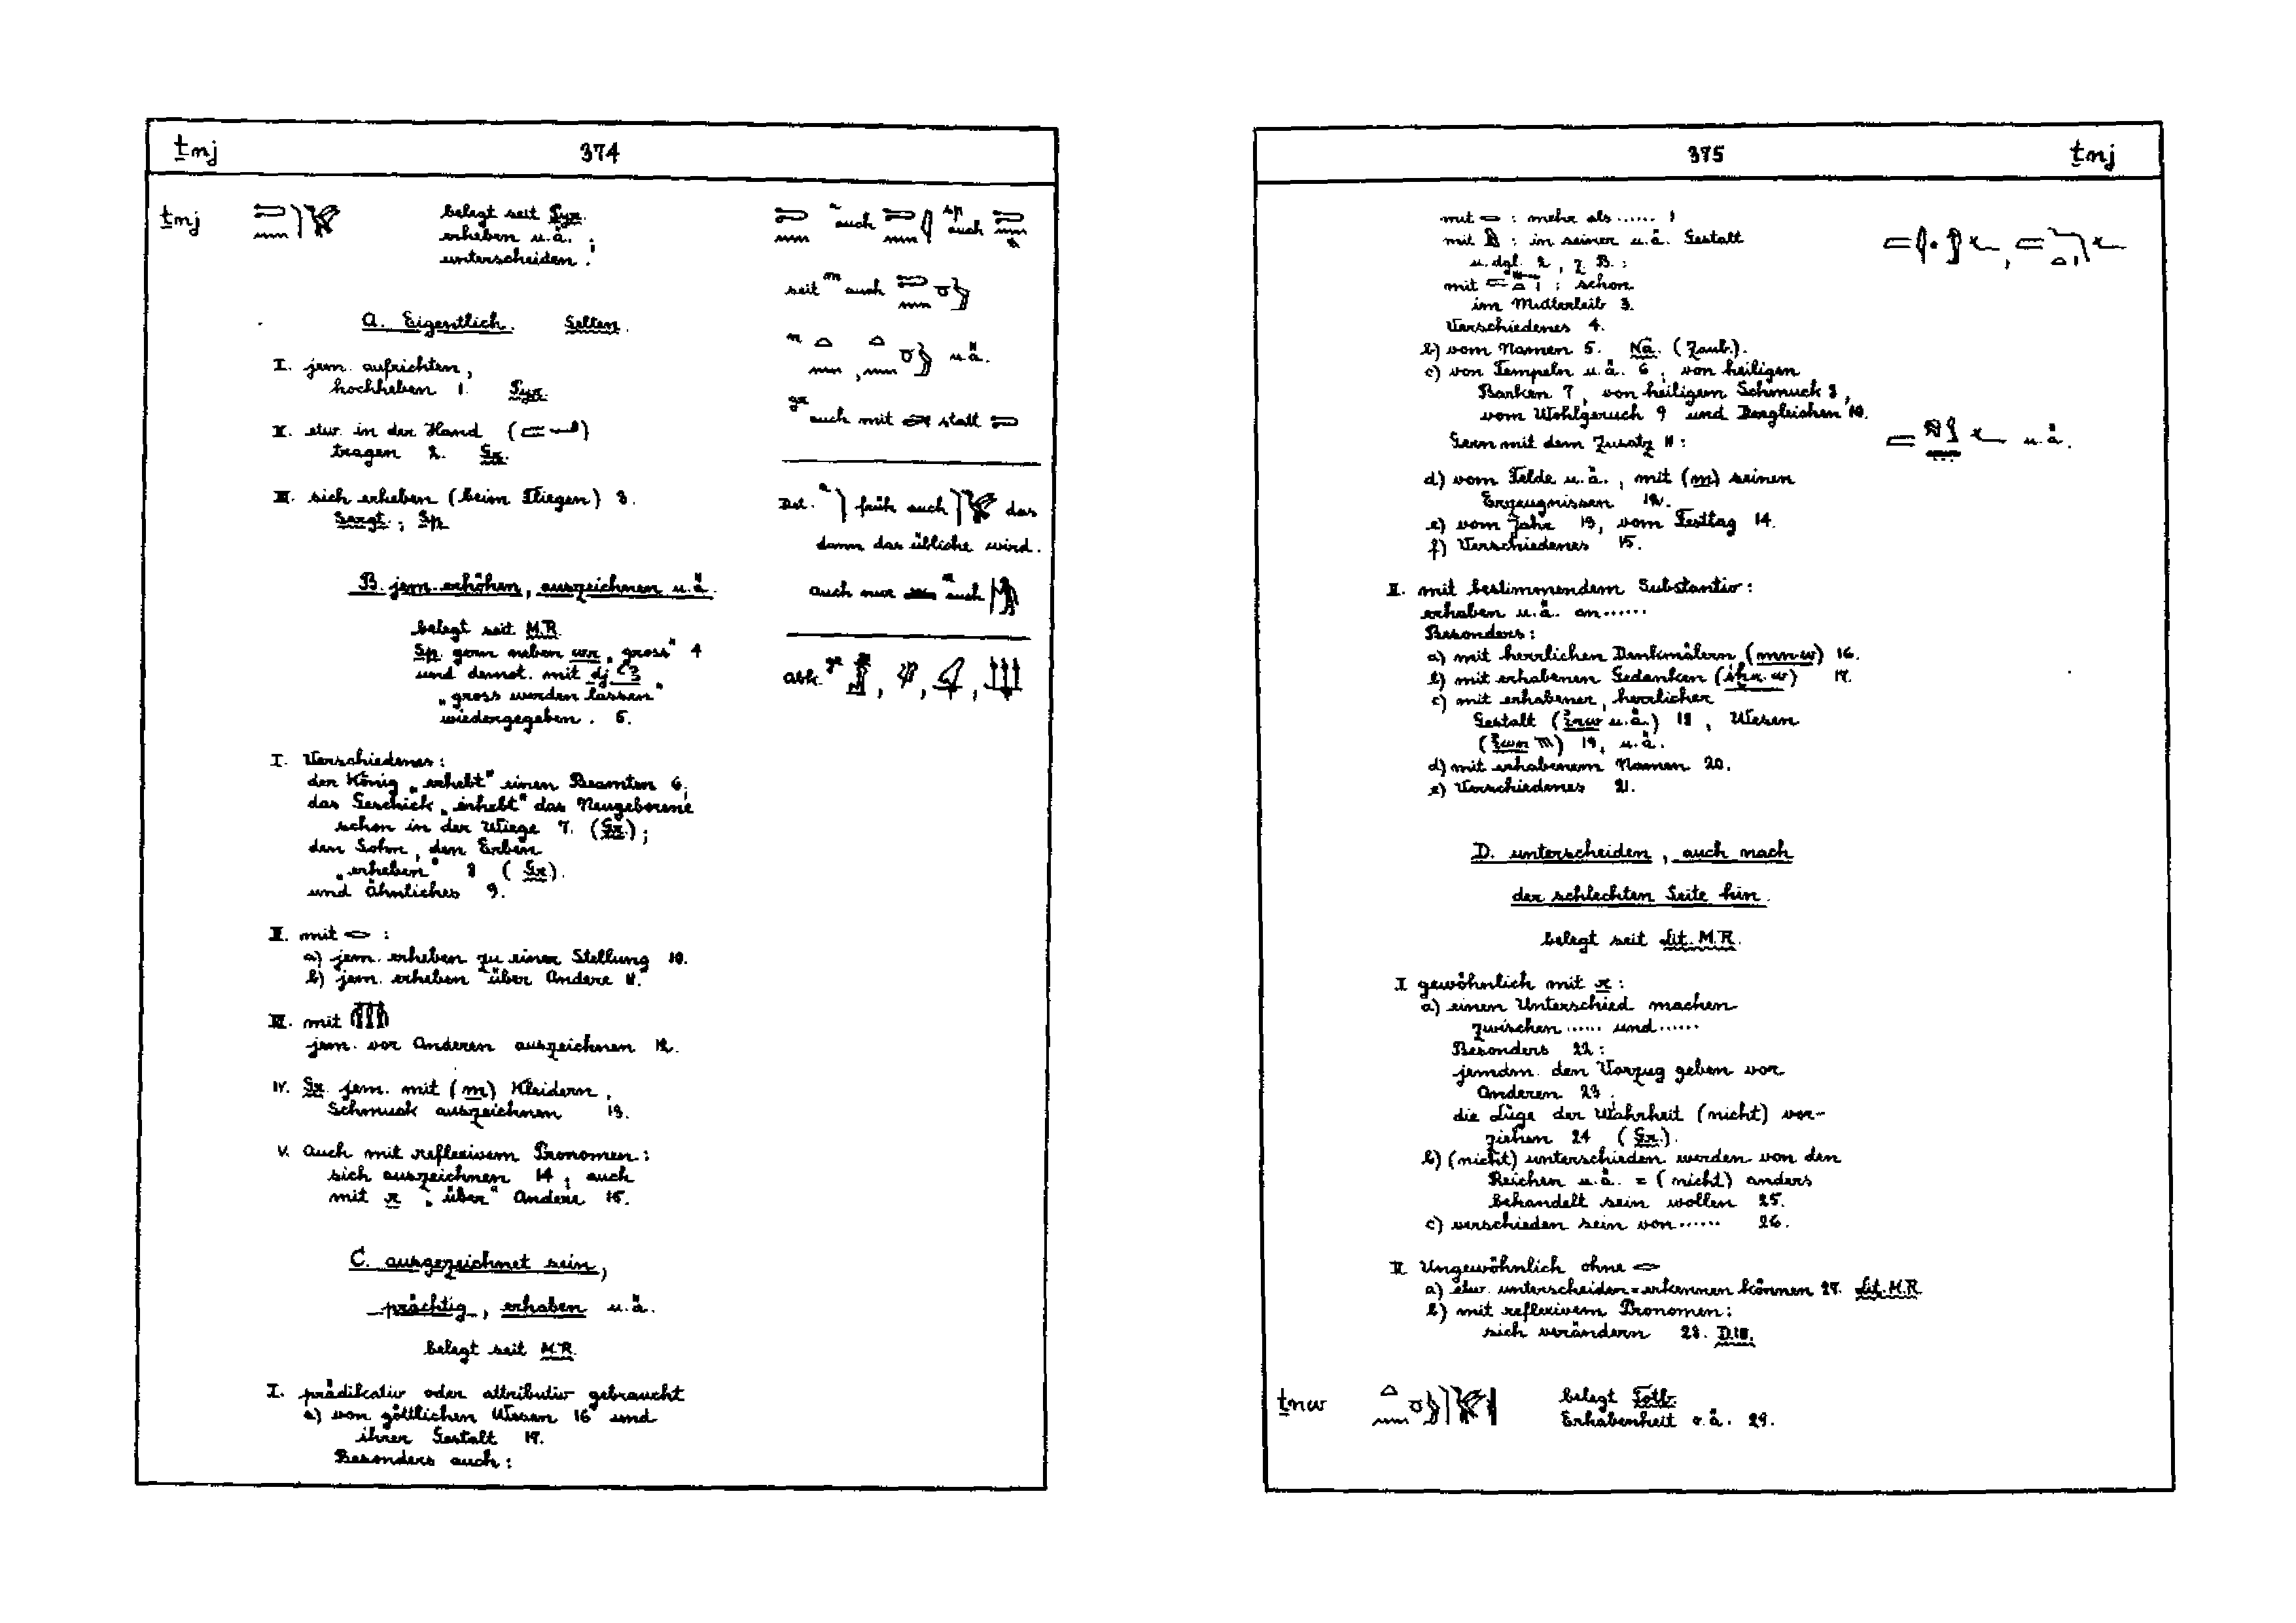 ṯnj 374
ṯnj belegt seit Pyr.
erheben u.ä. ;
unterscheiden.
A. Eigentlich. Selten.
I. jem. aufrichten,
hochheben 1. Pyr.
II. etw. in der Hand ( )
tragen 2. Gr.
III. sich erheben (beim Fliegen) 3.
Sargt.; Sp.
B. jem. erhöhen, auszeichnen u.ä.
belegt seit M.R.
Sp. gern neben wr „gross" 4
und demot. mit dj ꜥꜣ
„gross werden lassen"
wiedergegeben. 5.
I. Verschiedenes:
der König „erhebt" einen Beamten 6;
das Geschick „erhebt" das Neugeborene
schon in der Wiege 7. (Gr.);
den Sohn, den Erben
„erheben" 8 (Gr.).
und ähnliches 9.
II. mit :
a) jem. erheben zu einer Stellung 10.
b) jem. erheben über Andere 11.
III. mit
jem. vor Anderen auszeichnen 12.
IV. Gr. jem. mit (m) Kleidern,
Schmuck auszeichnen 13.
V. Auch mit reflexivem Pronomen:
sich auszeichnen 14, auch
mit r „über" Andere 15.
C. ausgezeichnet sein,
prächtig, erhaben u.ä.
belegt seit M.R.
I. prädikativ oder attributiv gebraucht
a) von göttlichen Wesen 16 und
ihrer Gestalt 17.
Besonders auch:
a auch Sp auch
seit m auch
n , u.ä.
gr auch mit statt
Det. a früh auch das
dann das übliche wird.
auch nur auch
abk. gr , , ,
375 ṯnj
mit : mehr als ...... 1
mit : in seiner u.ä. Gestalt
u. dgl. 2, z. B.:
mit : schon
im Mutterleib 3.
Verschiedenes 4.
b) vom Namen 5. Nä. (Zaub.).
c) von Tempeln u.ä. 6, von heiligen
Barken 7, von heiligem Schmuck 8,
vom Wohlgeruch 9 und Dergleichen 10.
Gern mit dem Zusatz 11: u.ä.
d) vom Felde u.ä., mit (m) seinen
Erzeugnissen 12.
e) vom Jahr 13, vom Festtag 14.
f) Verschiedenes 15.
II. mit bestimmendem Substantiv:
erhaben u.ä. an ......
Besonders:
a) mit herrlichen Denkmälern (mnw) 16.
b) mit erhabenen Gedanken 17.
c) mit erhabener, herrlicher
Gestalt (ꜥrw u.ä.) 18, Wesen
19, u.ä.
d) mit erhabenem Namen 20.
e) Verschiedenes 21.
D. unterscheiden, auch nach
der schlechten Seite hin.
belegt seit Lit. M.R.
I gewöhnlich mit r:
a) einen Unterschied machen
zwischen ...... und ......
Besonders 22:
jemdm. den Vorzug geben vor
Anderen 23;
die Lüge der Wahrheit (nicht) vor-
ziehen 24 (Gr.).
b) (nicht) unterschieden werden von den
Reichen u.ä. = (nicht) anders
behandelt sein wollen 25.
c) verschieden sein von ...... 26.
II Ungewöhnlich ohne
a) etw. unterscheiden = erkennen können 27. Lit. M.R
b) mit reflexivem Pronomen:
sich verändern 28.
ṯnw belegt Totb.
Erhabenheit o.ä. 29.